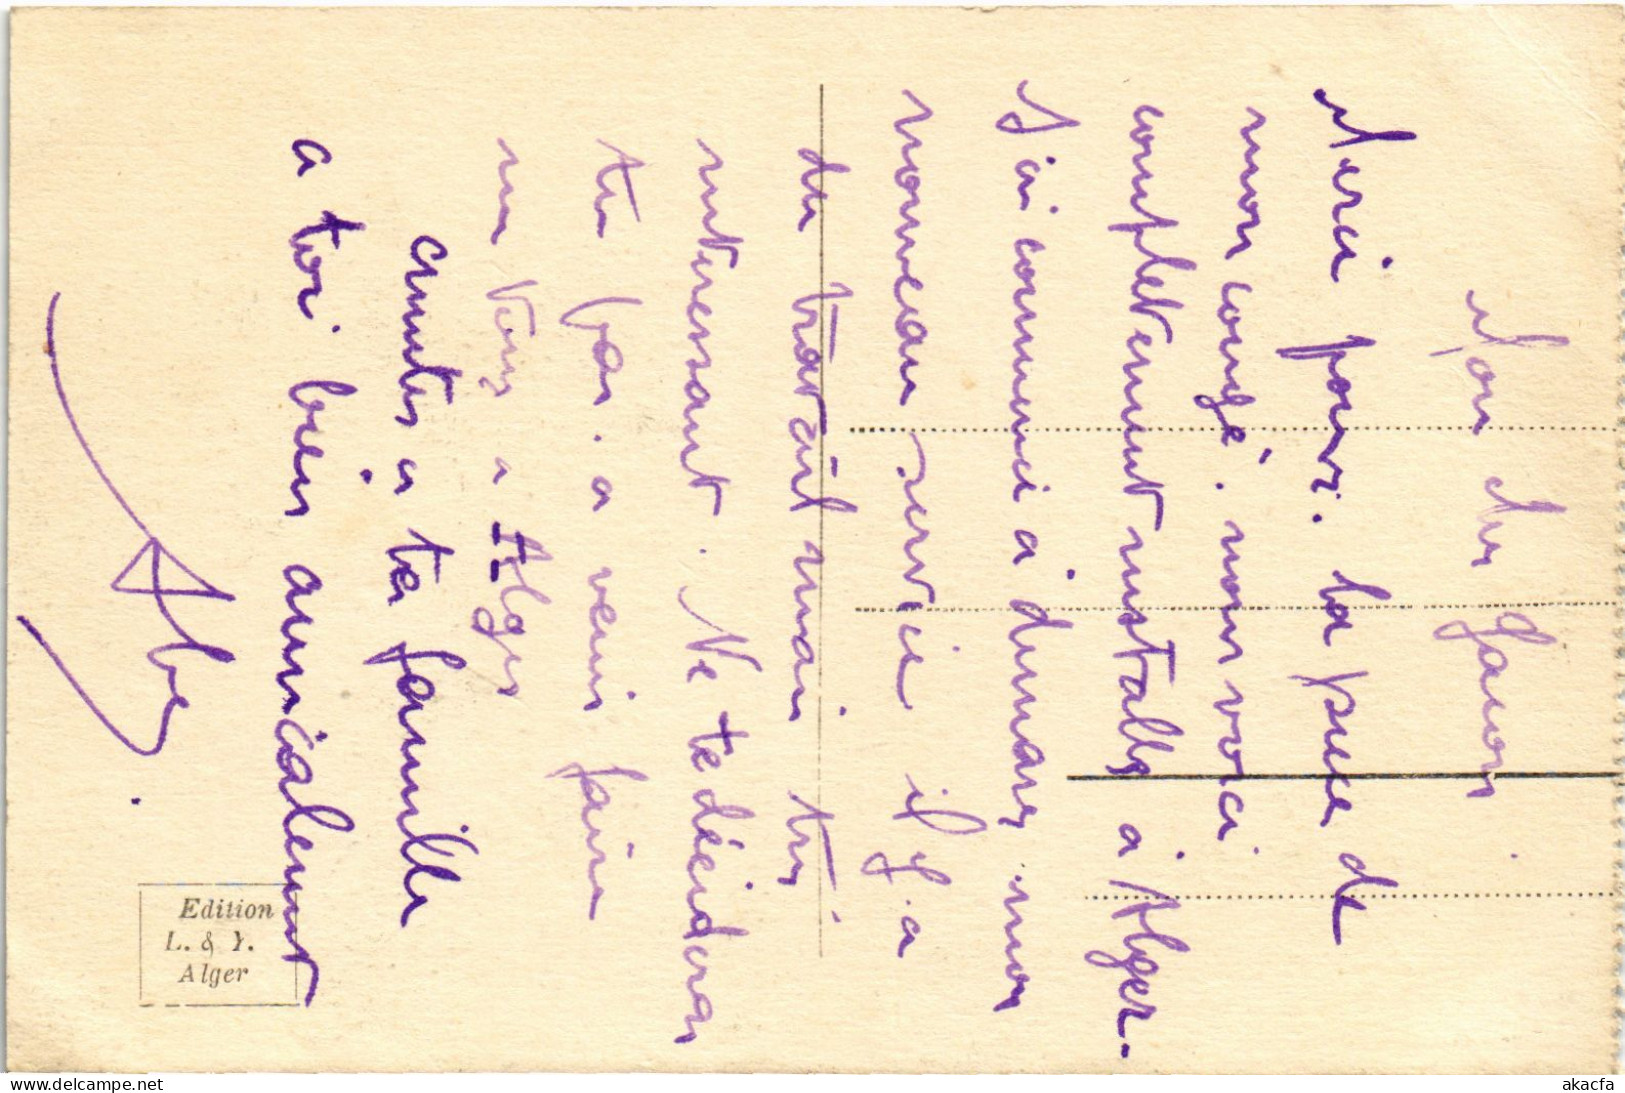 Mon cher
Merci pour. la puce de
mon congé. nous voici
completement installé à Alger.
J'ai commencé à dimare mon
nouveau service il y a
du travail mais très
interessant. Ne te décideras
tu pas. a venir faire
un tour a Alger
amities a ta famille
a toi bien amicalement
Abe
Edition
L. & Y.
Alger
www.delcampe.net
akacfa